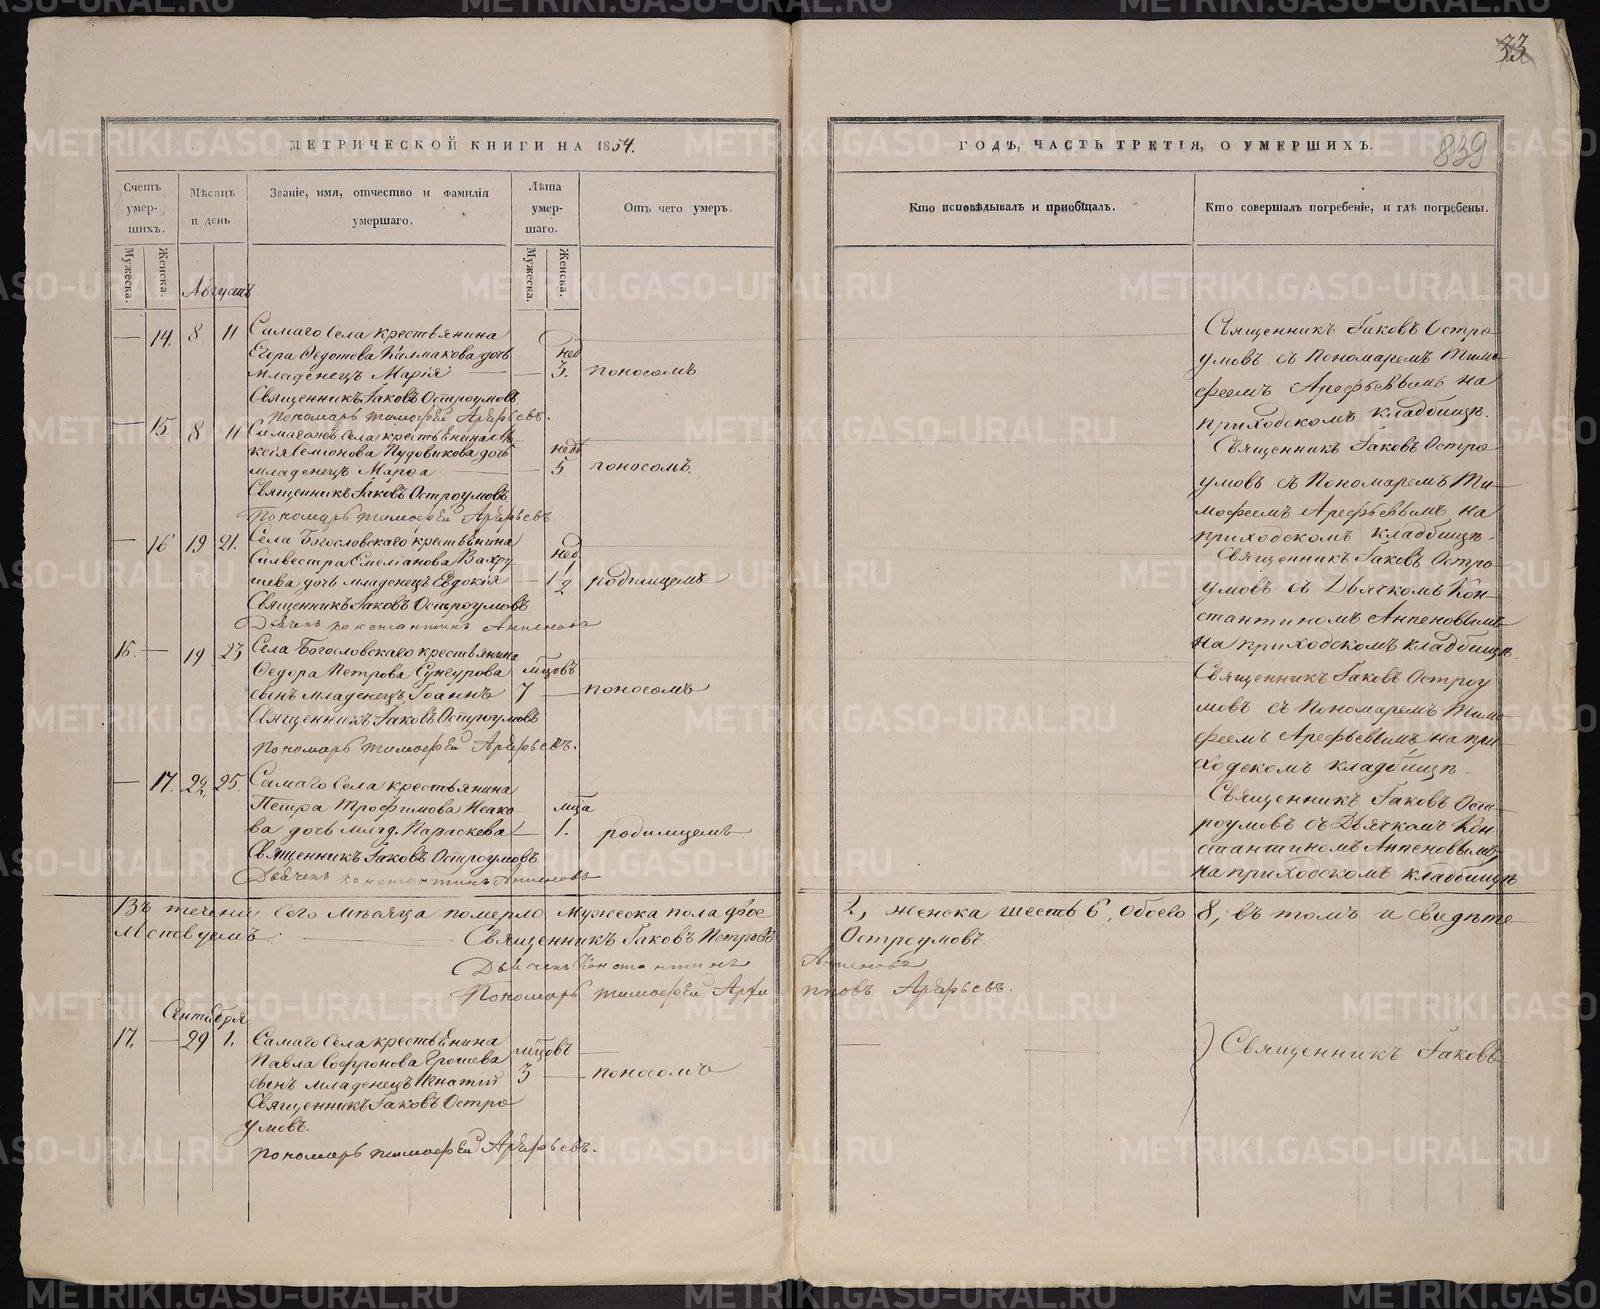 33
839
МЕТРИЧЕСКОЙ КНИГИ НА 1854.
ГОДЪ, ЧАСТЬ ТРЕТІЯ, О УМЕРШИХЪ.
Счетъ умер-шихъ.
Мѣсяцъ и день
Званіе, имя, отчество и фамилія умершаго.
Лѣта умер-шаго.
Отъ чего умеръ.
Кто исповѣдывалъ и пріобщалъ.
Кто совершалъ погребеніе, и гдѣ погребены.
Мужеска.
Женска.
Мужеска.
Женска.
Августъ
— 14. 8 11 Самаго Села крестьянина
Егора Федотова Калмакова дочь нед
младенецъ Марія — — 3. поносомъ
Священникъ Іаковъ Остроумовъ
пономарь тимофей Арефьевъ.
Священникъ Іаковъ Остро
умовъ съ Пономаремъ Тимо
феемъ Арефьевымъ на
приходскомъ кладбищѣ.
— 15. 8 11 Самагожъ Села крестьянина
Семіонова Пудовикова дочь недѣ
младенецъ Марфа — — 5 поносомъ.
Священникъ Іаковъ Остроумовъ
Пономарь тимофей Арефьевъ.
Священникъ Іаковъ Остро
умовъ съ Пономаремъ Ти-
мофеемъ Арефьевымъ на
приходскомъ кладбищѣ.
— 16 19 21. Села Богословскаго крестьянина
Силвестра Емеліанова Вахру нед
шева дочь младенецъ Евдокія — 1/2 родимцемъ
Священникъ Іаковъ Остроумовъ
Дьячекъ константинъ
Священникъ Іаковъ Остро
умовъ съ Дьячкомъ Кон-
стантиномъ Анпеновымъ
на приходскомъ кладбищѣ.
16. — 19 23 Села Богословскаго крестьянина
Федора Петрова Сунгурова мѣцовъ
сынъ младенецъ Іоаннъ 7 — поносомъ
Священникъ Іаковъ Остроумовъ
пономарь тимофей Арефьевъ.
Священникъ Іаковъ Остроу
мовъ съ Пономаремъ Тимо
феемъ Арефьевымъ на при
ходскомъ кладбищѣ.
— 17. 24. 25. Самаго Села крестьянина
Петра Трофимова Исако- мца
ва дочь млад. Параскева — 1. родимцемъ
Священникъ Іаковъ Остроумовъ
Дьячекъ константинъ
Священникъ Іаковъ Ост-
роумовъ съ Дьячкомъ Кон
стантиномъ Анпеновымъ
на приходскомъ кладбищѣ
Въ теченіи сего Мѣсяца померло мужеска пола двое 2, женска шесть 6, обоего 8; въ томъ и свидѣте
льствуемъ. Священникъ Іаковъ Петровъ Остроумовъ.
Дьячекъ Константинъ
Пономарь тимофей Архи повъ Арефьевъ.
Сентября
17. — 29 1. Самаго Села крестьянина
Павла Софронова Грошева мѣцовъ
сынъ младенецъ Игнатій 3 — поносомъ
Священникъ Іаковъ Остро
умовъ.
пономарь тимофей Арефьевъ.
Священникъ Іаковъ
METRIKI.GASO-URAL.RU